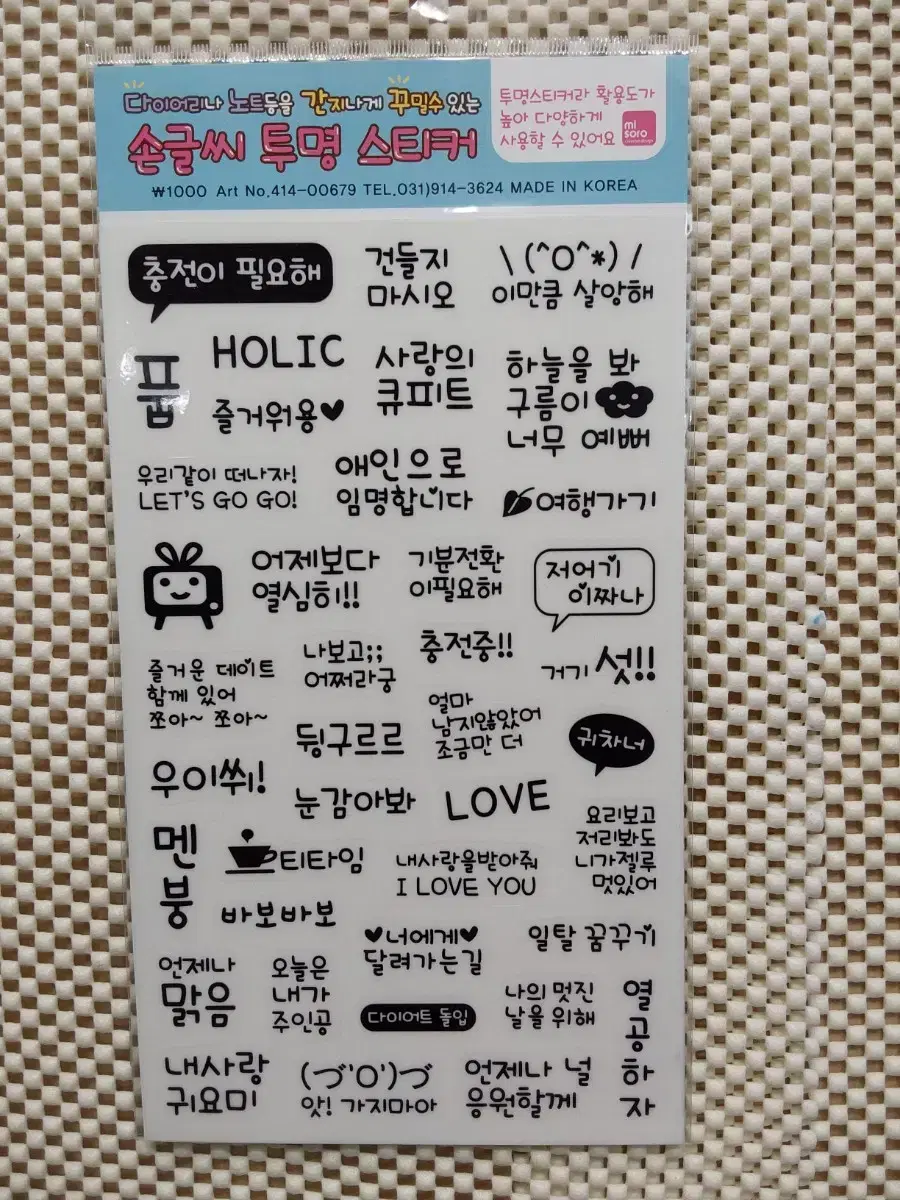 다이어리나 노트등을 간지나게 꾸밀수 있는
손글씨 투명 스티커
투명스티커라 활용도가
높아 다양하게
사용할 수 있어요
mi
soro
₩1000 Art No.414-00679 TEL.031)914-3624 MADE IN KOREA
충전이 필요해
건들지
마시오
\(^O^*)/
이만큼 살앙해
품
HOLIC
즐거워용♥
사랑의
큐피트
하늘을 봐
구름이
너무 예뻐
우리같이 떠나자!
LET'S GO GO!
애인으로
임명합니다
여행가기
어제보다
열심히!!
기분전환
이필요해
저어기
이짜나
즐거운 데이트
함께 있어
쪼아~ 쪼아~
나보고;;
어쩌라궁
충전중!!
거기 섯!!
뒹구르르
얼마
남지않았어
조금만 더
귀차너
우이쒸!
눈감아봐
LOVE
요리보고
저리봐도
니가젤루
멋있어
멘
붕
티타임
내사랑을받아줘
I LOVE YOU
바보바보
♥너에게♥
달려가는길
일탈 꿈꾸기
언제나
맑음
오늘은
내가
주인공
다이어트 돌입
나의 멋진
날을 위해
열
공
하
자
내사랑
귀요미
(づ'O')づ
앗! 가지마아
언제나 널
응원할께